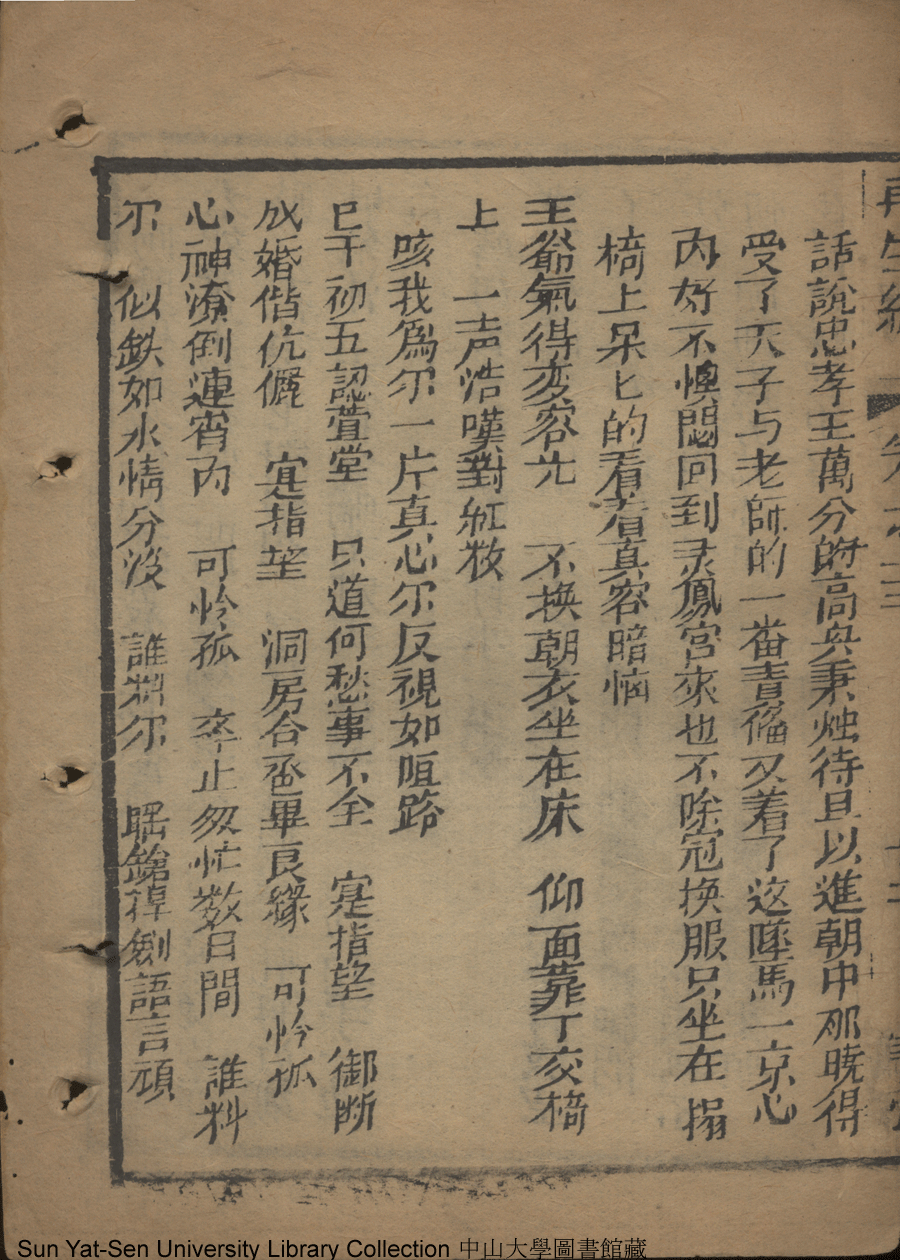 話說忠孝王萬分的高兴秉烛待旦以進朝中那曉得
受了天子与老師的一番責俻又着了这墜馬一京心
內好不懊悶回到灵鳳宮來也不除冠换服只坐在搨
椅上呆匕的看着真容暗恼
王爺氣得变容光 不换朝衣坐在床 仰面靠丁交椅
上 一声浩嘆對紅妝
咳我為尔一片真心尔反視如陌路
已干初五認萱堂 只道何愁事不全 寔指望 御断
成婚偕伉儷 寔指望 洞房合卺畢良緣 可怜孤
心神潦倒連宵內 可怜孤 卒止匆忙数日間 誰料
尔 似鉄如水情分没 誰料尔 唇鎗掉劍語言頑
Sun Yat-Sen University Library Collection 中山大學圖書館藏